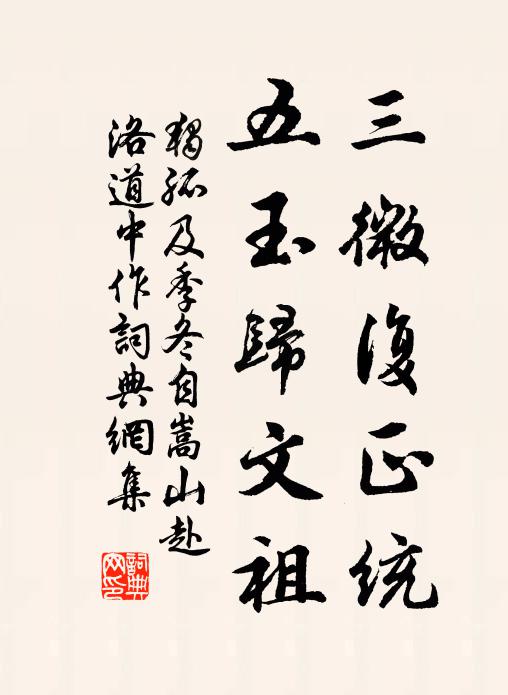 三微復正統
五玉歸文祖
獨孤及季冬自嵩山赴
洛道中作詞典網集
詞典
网印